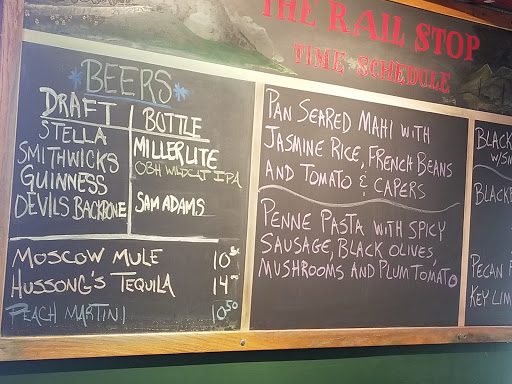 THE RAIL STOP
TIME SCHEDULE
*BEERS*
DRAFT
STELLA
SMITHWICKS
GUINNESS
DEVILS BACKBONE
BOTTLE
MILLER LITE
OBH WILDCAT IPA
SAM ADAMS
MOSCOW MULE 10 50
HUSSONG'S TEQUILA 14
PEACH MARTINI 10.50
PAN SEARED MAHI WITH
JASMINE RICE, FRENCH BEANS
AND TOMATO & CAPERS
PENNE PASTA WITH SPICY
SAUSAGE, BLACK OLIVES,
MUSHROOMS AND PLUM TOMATO
BLACK
BLACKB
PECAN
KEY LIM